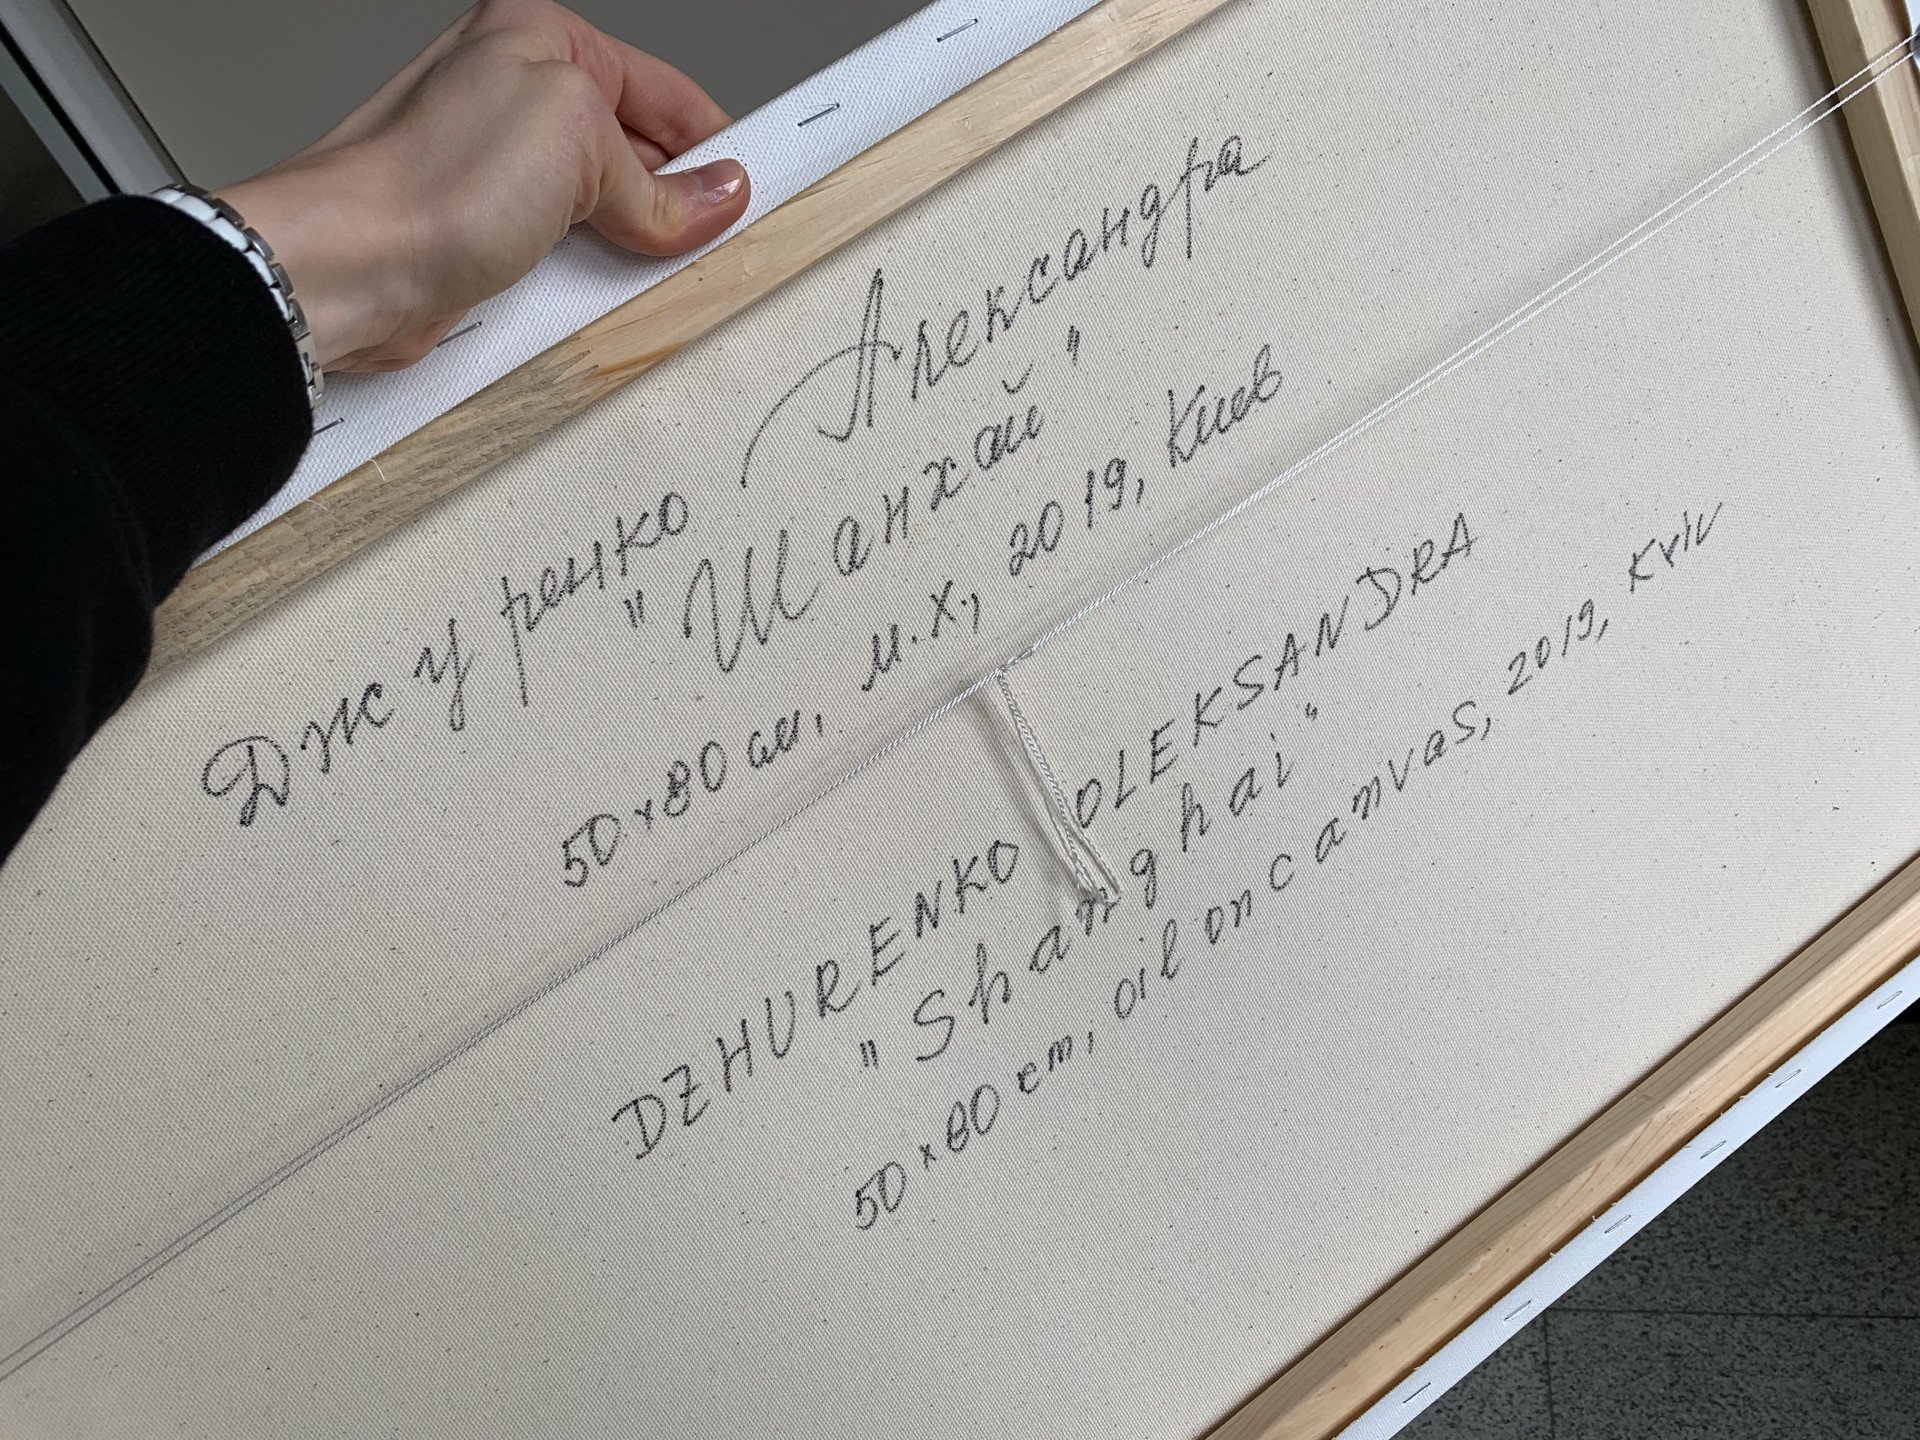 Джуренко Александра
"Шанхай"
50x80 см, м.х., 2019, Киев
DZHURENKO OLEKSANDRA
"Shanghai"
50x80 cm, oil on canvas, 2019, Kyiv